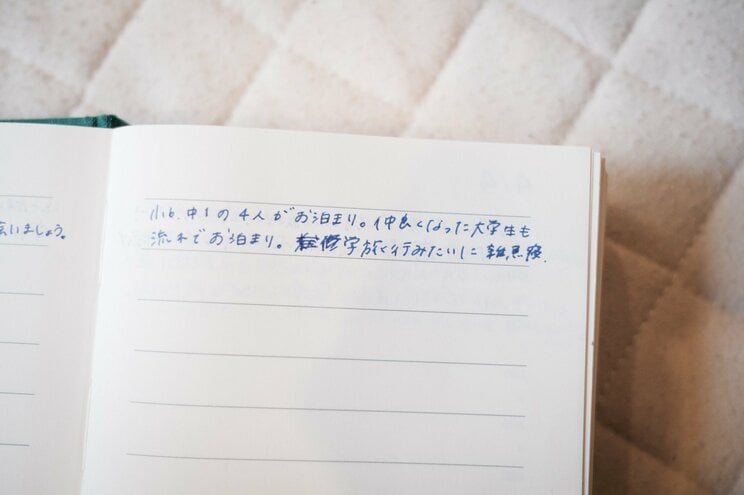 いましょう。
小6、中1の4人がお泊まり。仲良くなった大学生も
流れでお泊まり。修学旅行みたいに雑魚寝。